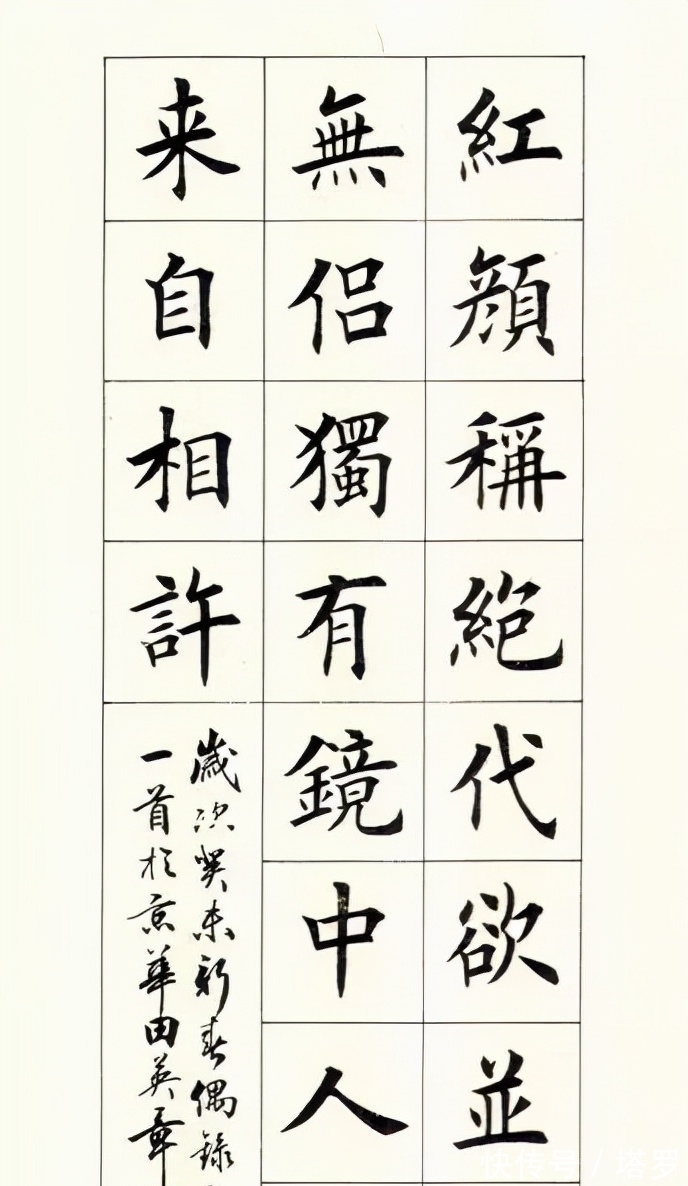 紅顔稱絶代欲並
無侶獨有鏡中人
来自相許
歲次癸未新春偶錄
一首於京華田英章
快传号/塔罗